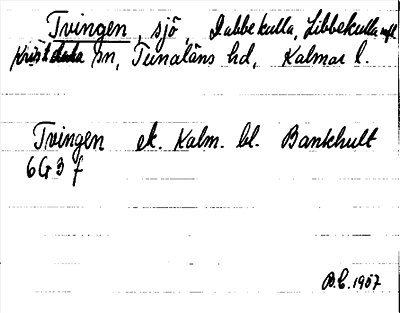 Tvingen, sjö, Dabbekulla, Libbekulla mfl
Kristdala sn, Tunaläns hd, Kalmar l.
Tvingen ek. Kalm. bl. Bankhult
6G3f
B.E. 1957